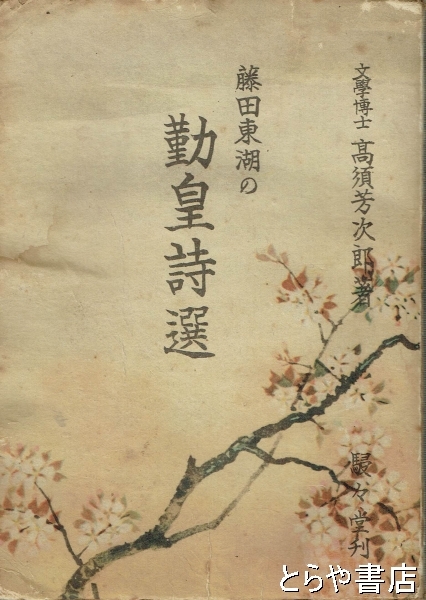 文學博士 高須芳次郎 著
藤田東湖の
勤皇詩選
駸々堂刊
とらや書店